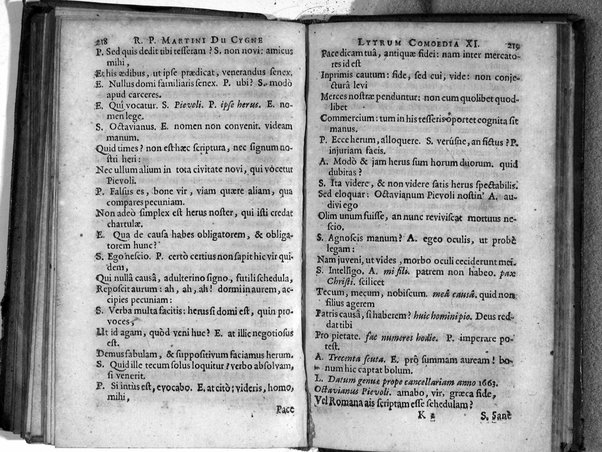 218 R. P. MARTINI DU CYGNE
P. Sed quis dedit tibi tesseram? S. non novi: amicus
mihi,
Et his ædibus, ut ipse prædicat, venerandus senex.
E. Nullus domi familiaris senex. P. ubi? S. modò
apud carceres.
E. Qui vocatur. S. Pievoli. P. ipse herus. E. no-
men lege.
S. Octavianus. E. nomen non convenit. videam
manum.
Quid times? non est hæc scriptura, nec signum no-
stri heri:
Nec ullum alium in tota civitate novi, qui vocetur
Pievoli.
P. Falsus es, bone vir, viam quære aliam, qua
compares pecuniam.
Non adeò simplex est herus noster, qui isti credat
chartulæ.
E. Qua de causa habes obligatorem, & obliga-
torem hunc?
S. Ego nescio. P. certò certius non sapit hic vir qui-
dem,
Qui nulla causâ, adulterino signo, futili schedula,
Reposcit aurum: ah, ah, ah! dormi in aurem, ac-
cipies pecuniam:
S. Verba multa facitis: herus si domi est, quin pro-
voces,
Ut id agam, quòd veni huc? E. at illic negotiosus
est.
Demus fabulam, & suppositivum faciamus herum.
S. Quid ille tecum solus loquitur? verbo absolvam,
si venerit.
P. Si intùs est, evocabo. E. at citò: videris, homo,
mihi,
Pace
LYTRUM COMOEDIA XI. 219
Pace dicam tuâ, antiquæ fidei: nam inter mercato-
res id est
Inprimis cautum: fide, sed cui, vide: non conje-
cturâ levi
Merces nostræ penduntur: non cum quolibet quod-
libet
Commercium: tum in his tesseris oportet cognita sit
manus.
P. Ecce herum, alloquere. S. verúsne, an fictus? P.
injuriam facis.
A. Modò & jam herus sum horum duorum. quid
dubitas?
S. Ita videre, & non videre satis herus spectabilis.
Sed eloquar: Octavianum Pievoli nostin' A. au-
divi ego
Olim unum fuisse, an nunc reviviscat mortuus ne-
scio.
S. Agnoscis manum? A. egeo oculis, ut probè
legam:
Nam juveni, ut vides, morbo oculi ceciderunt mei.
S. Intelligo. A. mi fili. patrem non habeo. pax
Christi. scilicet
Tecum, mecum, nobiscum. meâ causâ. quid non
filius agerem
Patris causâ, si haberem? huic homini pio. Deus red-
dat tibi
Pro pietate. fac numeres hodie. P. imperare po-
test.
A. Trecenta scuta. E. prò summam auream! bo-
num hic captat bolum.
L. Datum genuæ prope cancellariam anno 1663.
Octavianus Pievoli. amabo, vir, græca fide,
Vel Romana ais scriptam esse schedulam?
K 2 S. Sanè